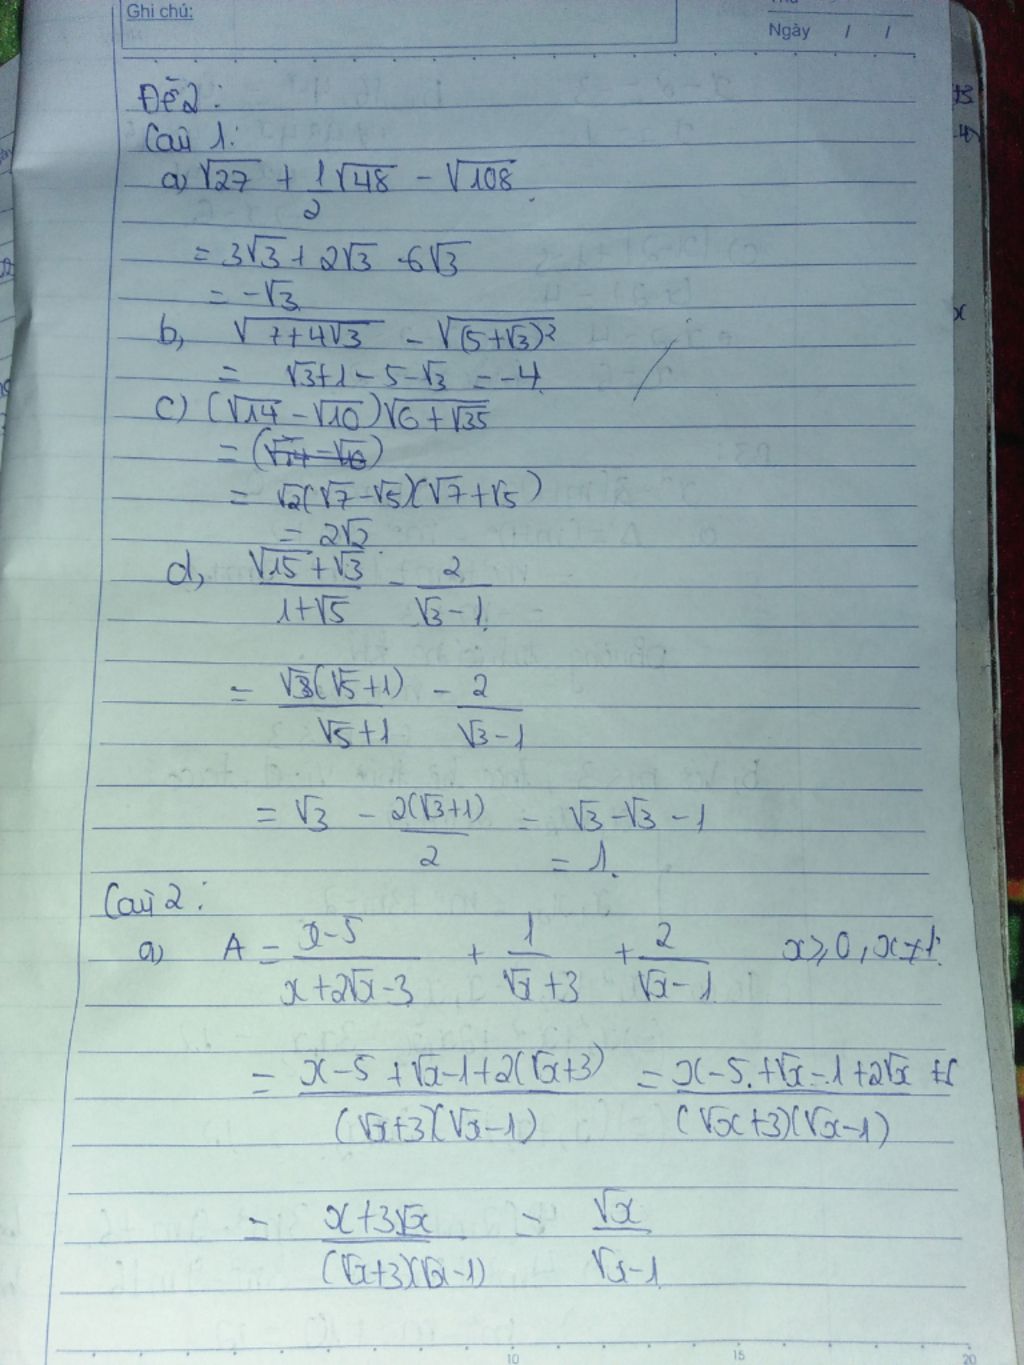 Ghi chú:
Ngày / /
Đề 2:
Câu 1:
a) √27 + 1/2 √48 - √108.
= 3√3 + 2√3 - 6√3
= -√3.
b, √(7+4√3) - √((5+√3)²)
= √3+1 - 5-√3 = -4.
c) (√14 - √10)√(6+√35)
= √2(√7-√5)(√7+√5)
= 2√2.
d, (√15+√3)/(1+√5) - 2/(√3-1).
= √3(√5+1)/(√5+1) - 2/(√3-1)
= √3 - 2(√3+1)/2 = √3-√3-1
= 1.
Câu 2:
a) A = (x-5)/(x+2√x-3) + 1/(√x+3) + 2/(√x-1) x⩾0, x≠1.
= (x-5+√x-1+2(√x+3))/((√x+3)(√x-1)) = (x-5+√x-1+2√x+6)/((√x+3)(√x-1))
= (x+3√x)/((√x+3)(√x-1)) = √x/(√x-1)
10 15 20